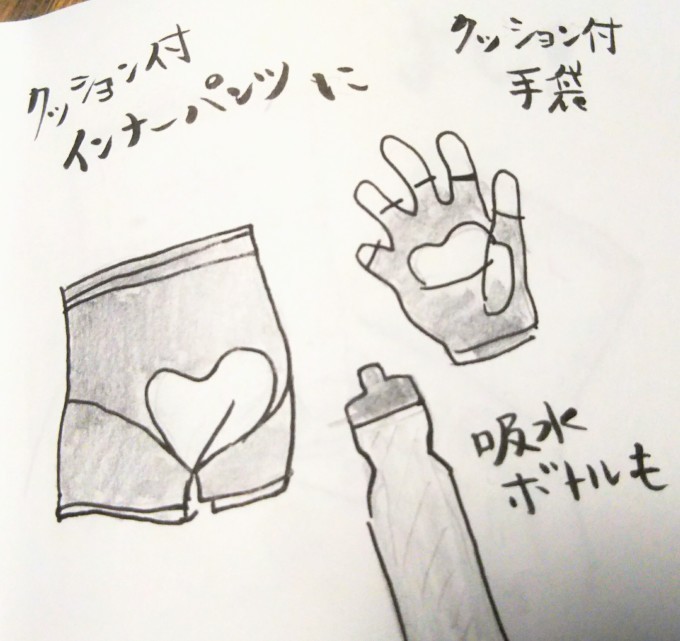 クッション付
インナーパンツに
クッション付
手袋
吸水
ボトルも